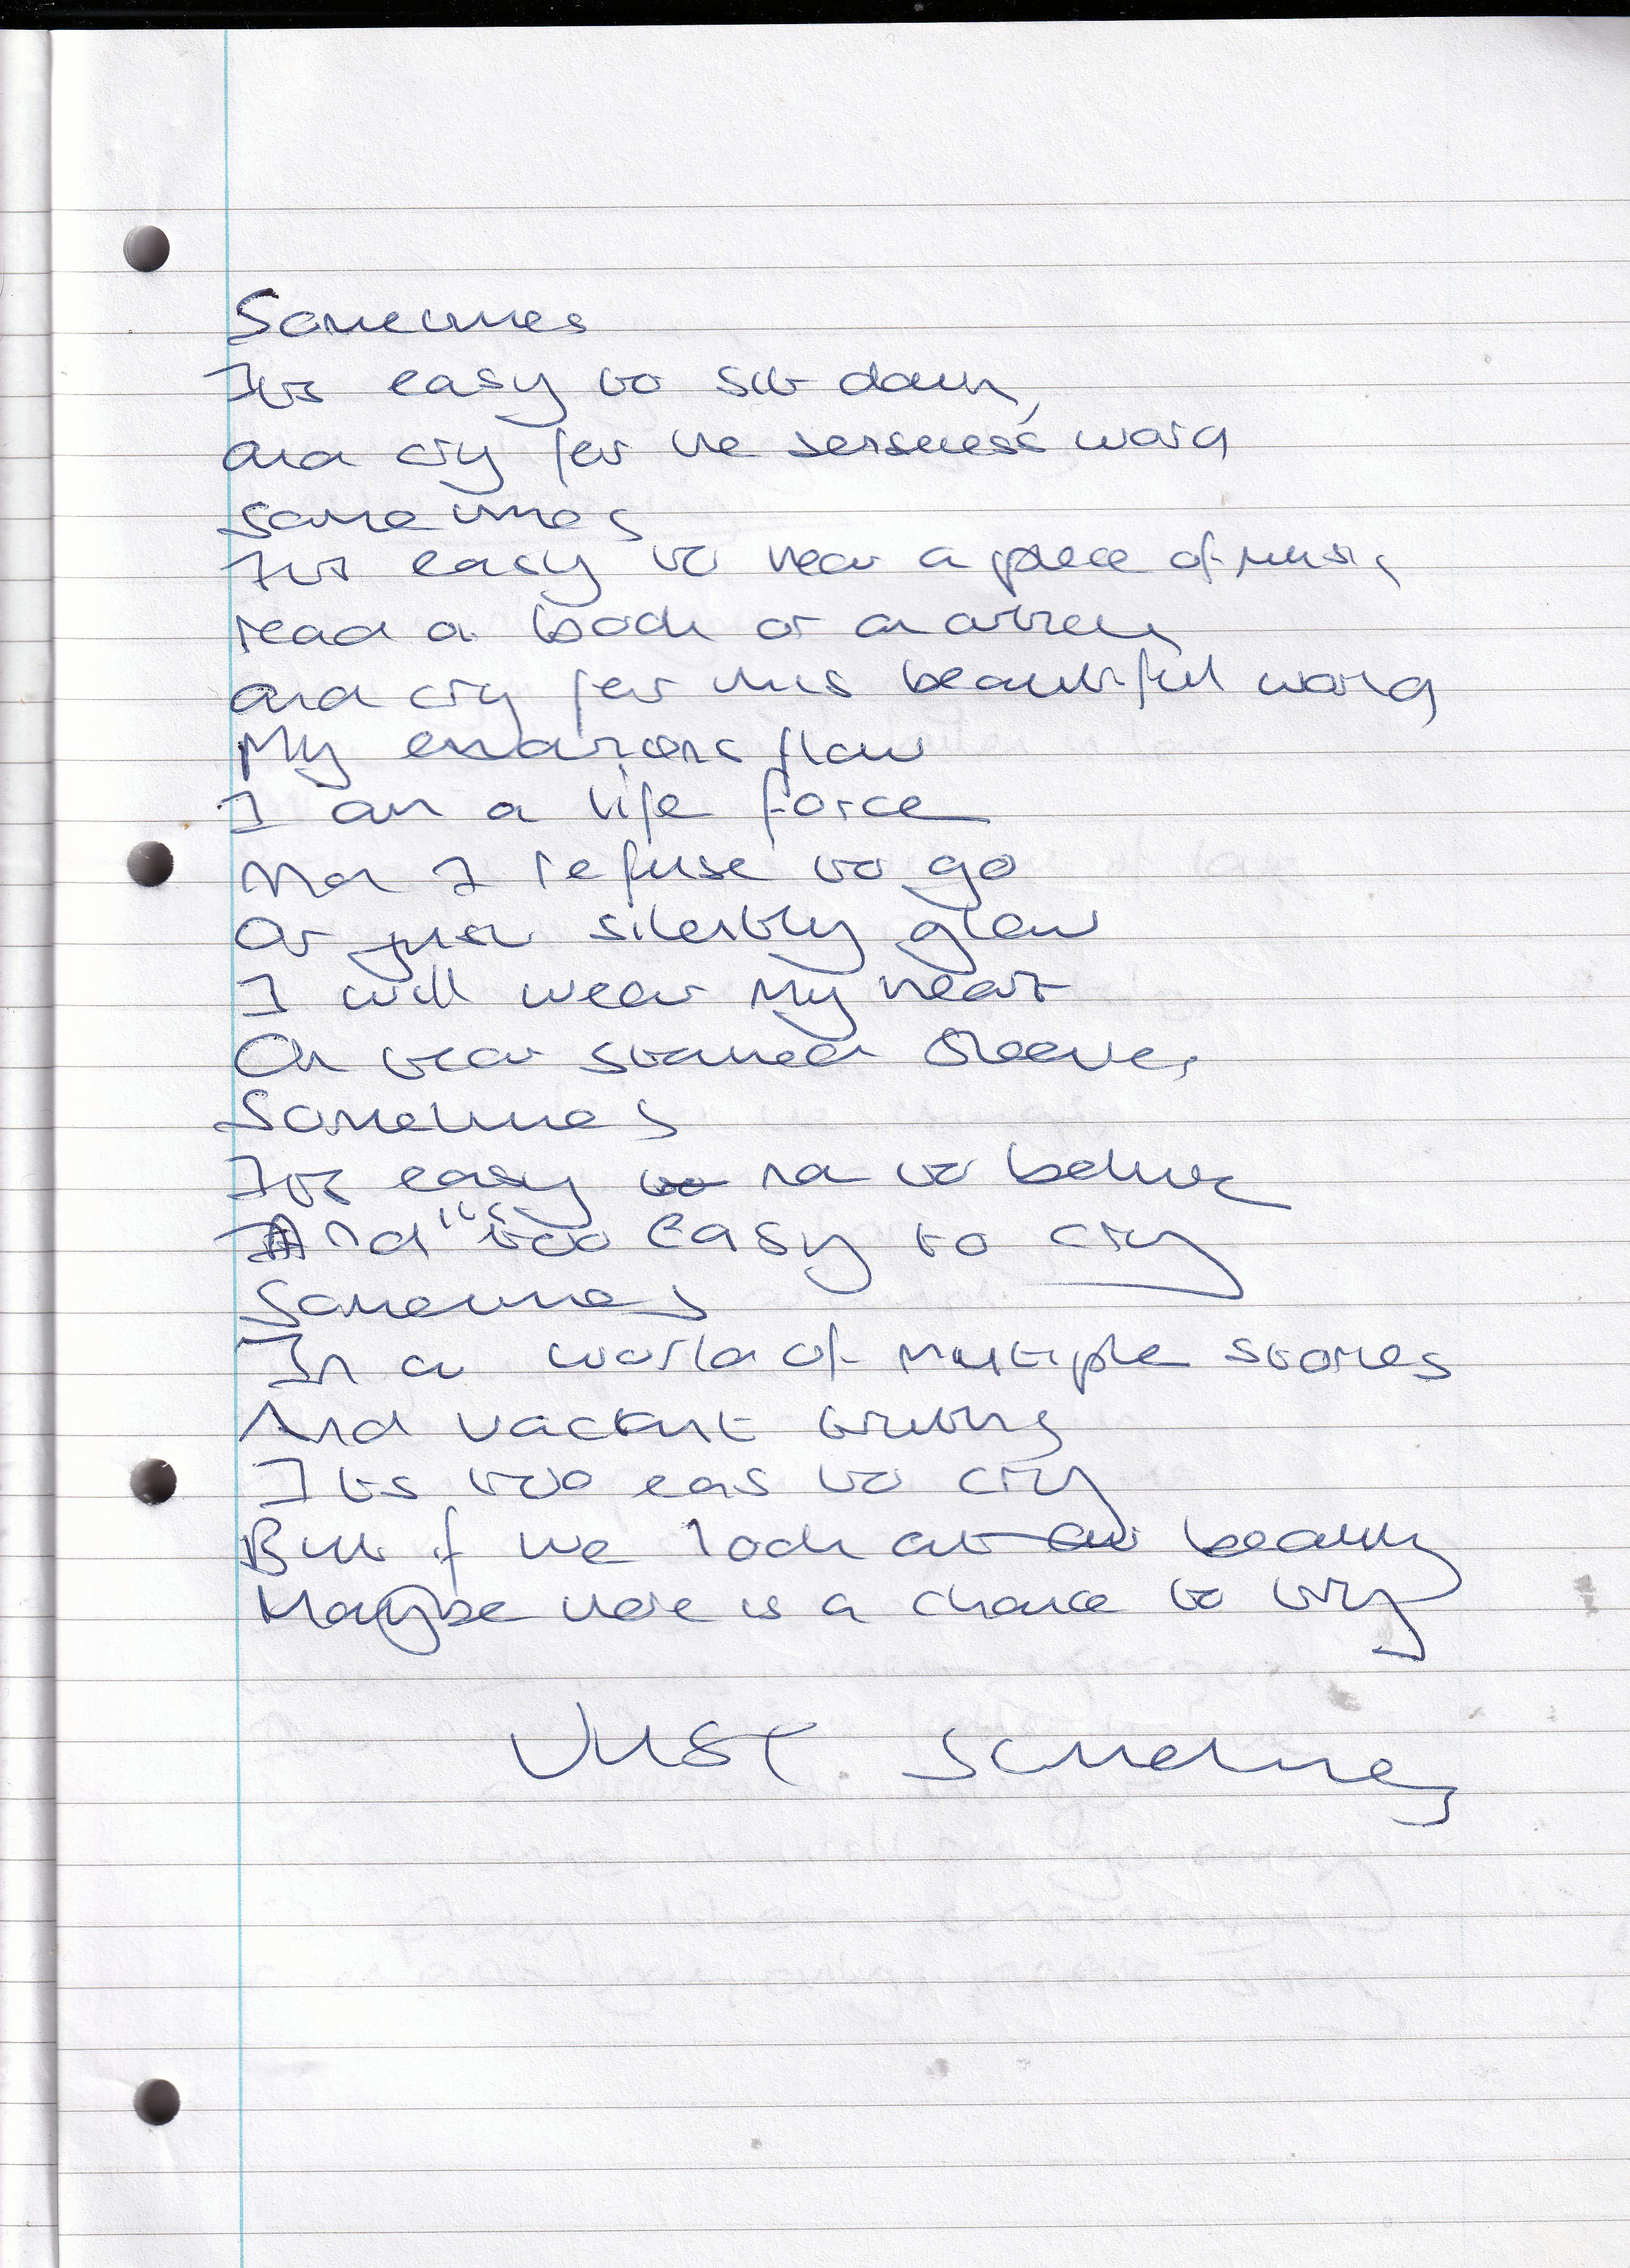 Sometimes
Its easy to sit down,
and cry for the senseless world
Sometimes
Its easy to hear a piece of music,
read a book or an artical
and cry for this beautiful world
My emotions flow
I am a life force
That I refuse to go
Or just silently glow
I will wear my heart
On tear stained sleeves
Sometimes
Its easy to no to believe
And "too easy to cry
Sometimes
In a world of multiple stories
And vacant
Its too eas to cry
But if we look at beauty
Maybe there is a chance to try
Just Sometimes